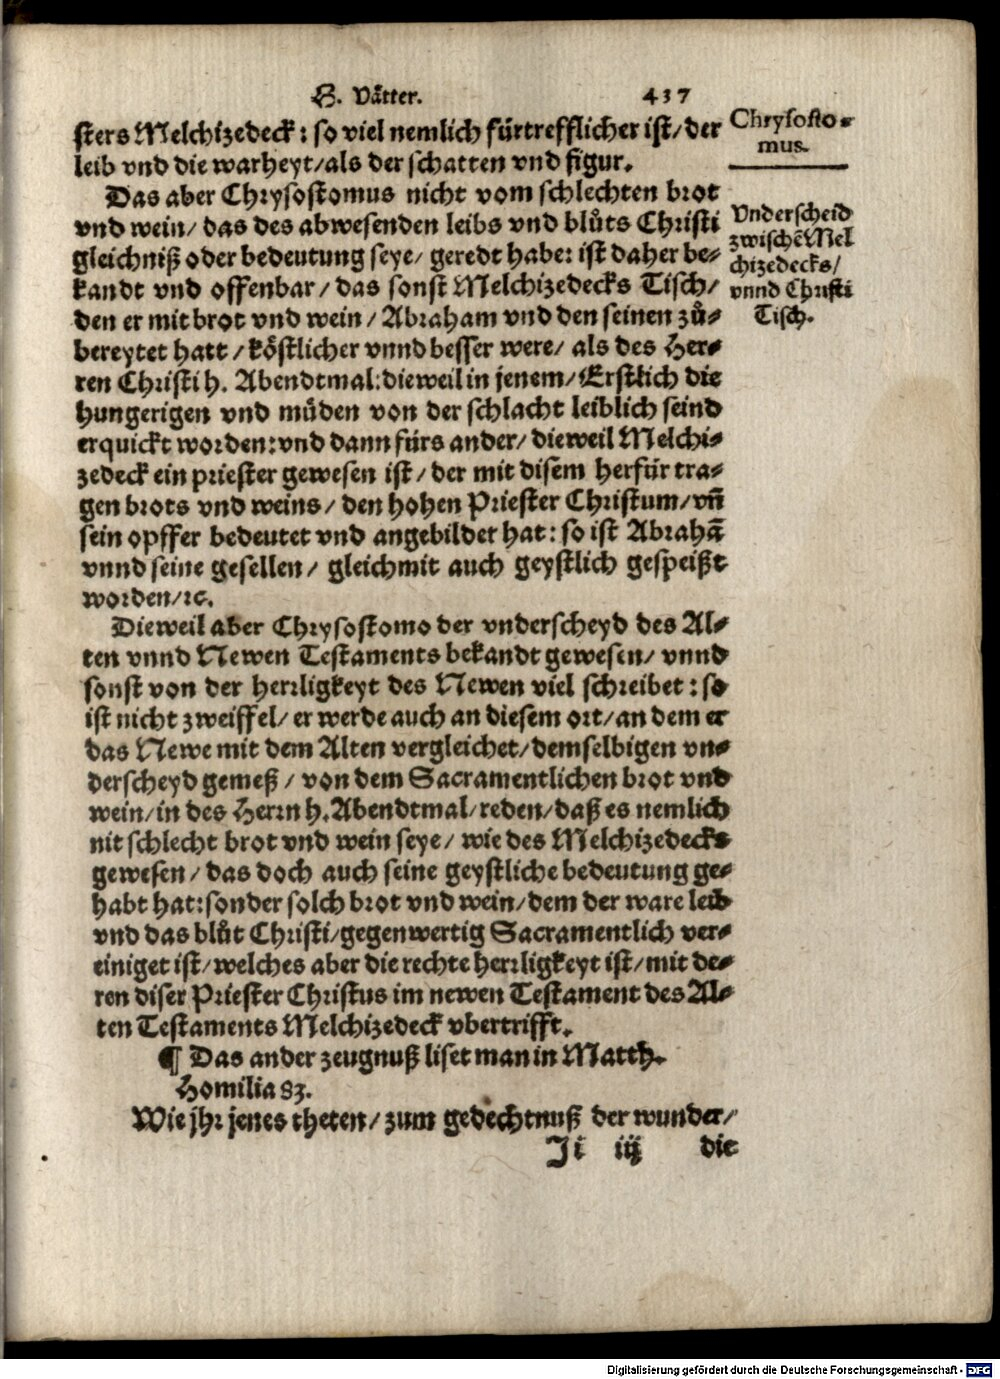 H. Vätter. 437
sters Melchizedeck: so viel nemlich fürtrefflicher ist/ der
leib vnd die warheyt/ als der schatten vnd figur.
Chrysosto-
mus.
Das aber Chrysostomus nicht vom schlechten brot
vnd wein/ das des abwesenden leibs vnd blůts Christi
gleichniß oder bedeutung seye/ geredt habe: ist daher be-
kandt vnd offenbar/ das sonst Melchizedecks Tisch/
den er mit brot vnd wein/ Abraham vnd den seinen zů-
bereytet hatt/ köstlicher vnnd besser were/ als des Her-
ren Christi h. Abendtmal: dieweil in jenem/ Erstlich die
hungerigen vnd müden von der schlacht leiblich seind
erquickt worden: vnd dann fürs ander/ dieweil Melchi-
zedeck ein priester gewesen ist/ der mit disem herfür tra-
gen brots vnd weins/ den hohen Priester Christum/ vñ
sein opffer bedeutet vnd angebildet hat: so ist Abrahã
vnnd seine gesellen/ gleichmit auch geystlich gespeißt
worden/ ꝛc.
Vnderscheid
zwischẽ Mel
chizedecks/
vnnd Christi
Tisch.
Dieweil aber Chrysostomo der vnderscheyd des Al-
ten vnnd Newen Testaments bekandt gewesen/ vnnd
sonst von der herrligkeyt des Newen viel schreibet: so
ist nicht zweiffel/ er werde auch an diesem ort/ an dem er
das Newe mit dem Alten vergleichet/ demselbigen vn-
derscheyd gemeß/ von dem Sacramentlichen brot vnd
wein/ in des Herrn h. Abendtmal/ reden/ daß es nemlich
nit schlecht brot vnd wein seye/ wie des Melchizedecks
gewesen/ das doch auch seine geystliche bedeutung ge-
habt hat: sonder solch brot vnd wein/ dem der ware leib
vnd das blůt Christi/ gegenwertig Sacramentlich ver-
einiget ist/ welches aber die rechte herrligkeyt ist/ mit de-
ren diser Priester Christus im newen Testament des Al-
ten Testaments Melchizedeck vbertrifft.
¶ Das ander zeugnuß liset man in Matth.
Homilia 83.
Wie jhr jenes theten/ zum gedechtnuß der wunder/
Ii iij die
Digitalisierung gefördert durch die Deutsche Forschungsgemeinschaft - DFG